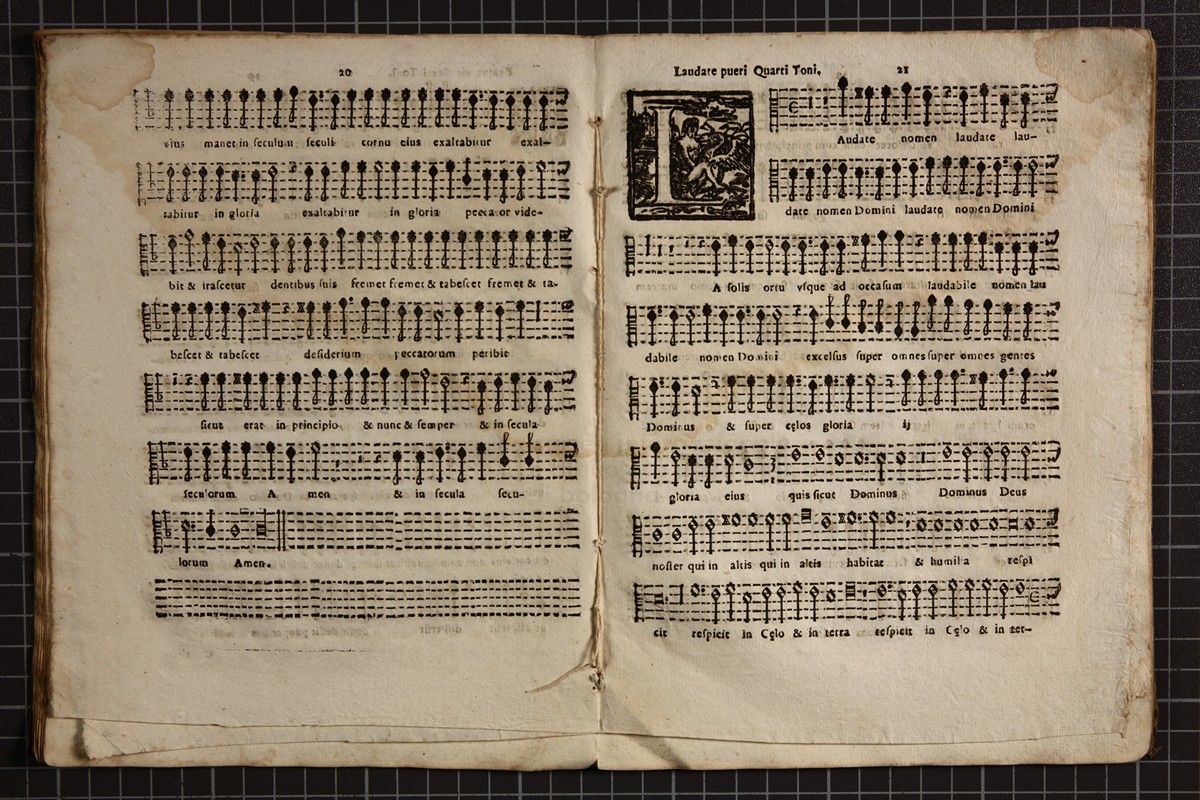 20
eius manet in seculum seculi cornu eius exaltabitur exal-
tabitur in gloria exaltabitur in gloria peccator vide-
bit & irascetur dentibus suis fremet fremet & tabescet fremet & ta-
bescet & tabescet desiderium peccatorum peribit
sicut erat in principio & nunc & semper & in secula
seculorum A men & in secula secu-
lorum Amen.
Laudate pueri Quarti Toni. 21
L
Audate nomen laudate lau-
date nomen Domini laudate nomen Domini
A solis ortu vsque ad occasum laudabile nomen lau
dabile nomen Domini excelsus super omnes super omnes gentes
Dominus & super cęlos gloria ij
gloria eius quis sicut Dominus Dominus Deus
noster qui in altis qui in altis habitat & humilia respi
cit respicit in Cęlo & in terra respicit in Cęlo & in ter-